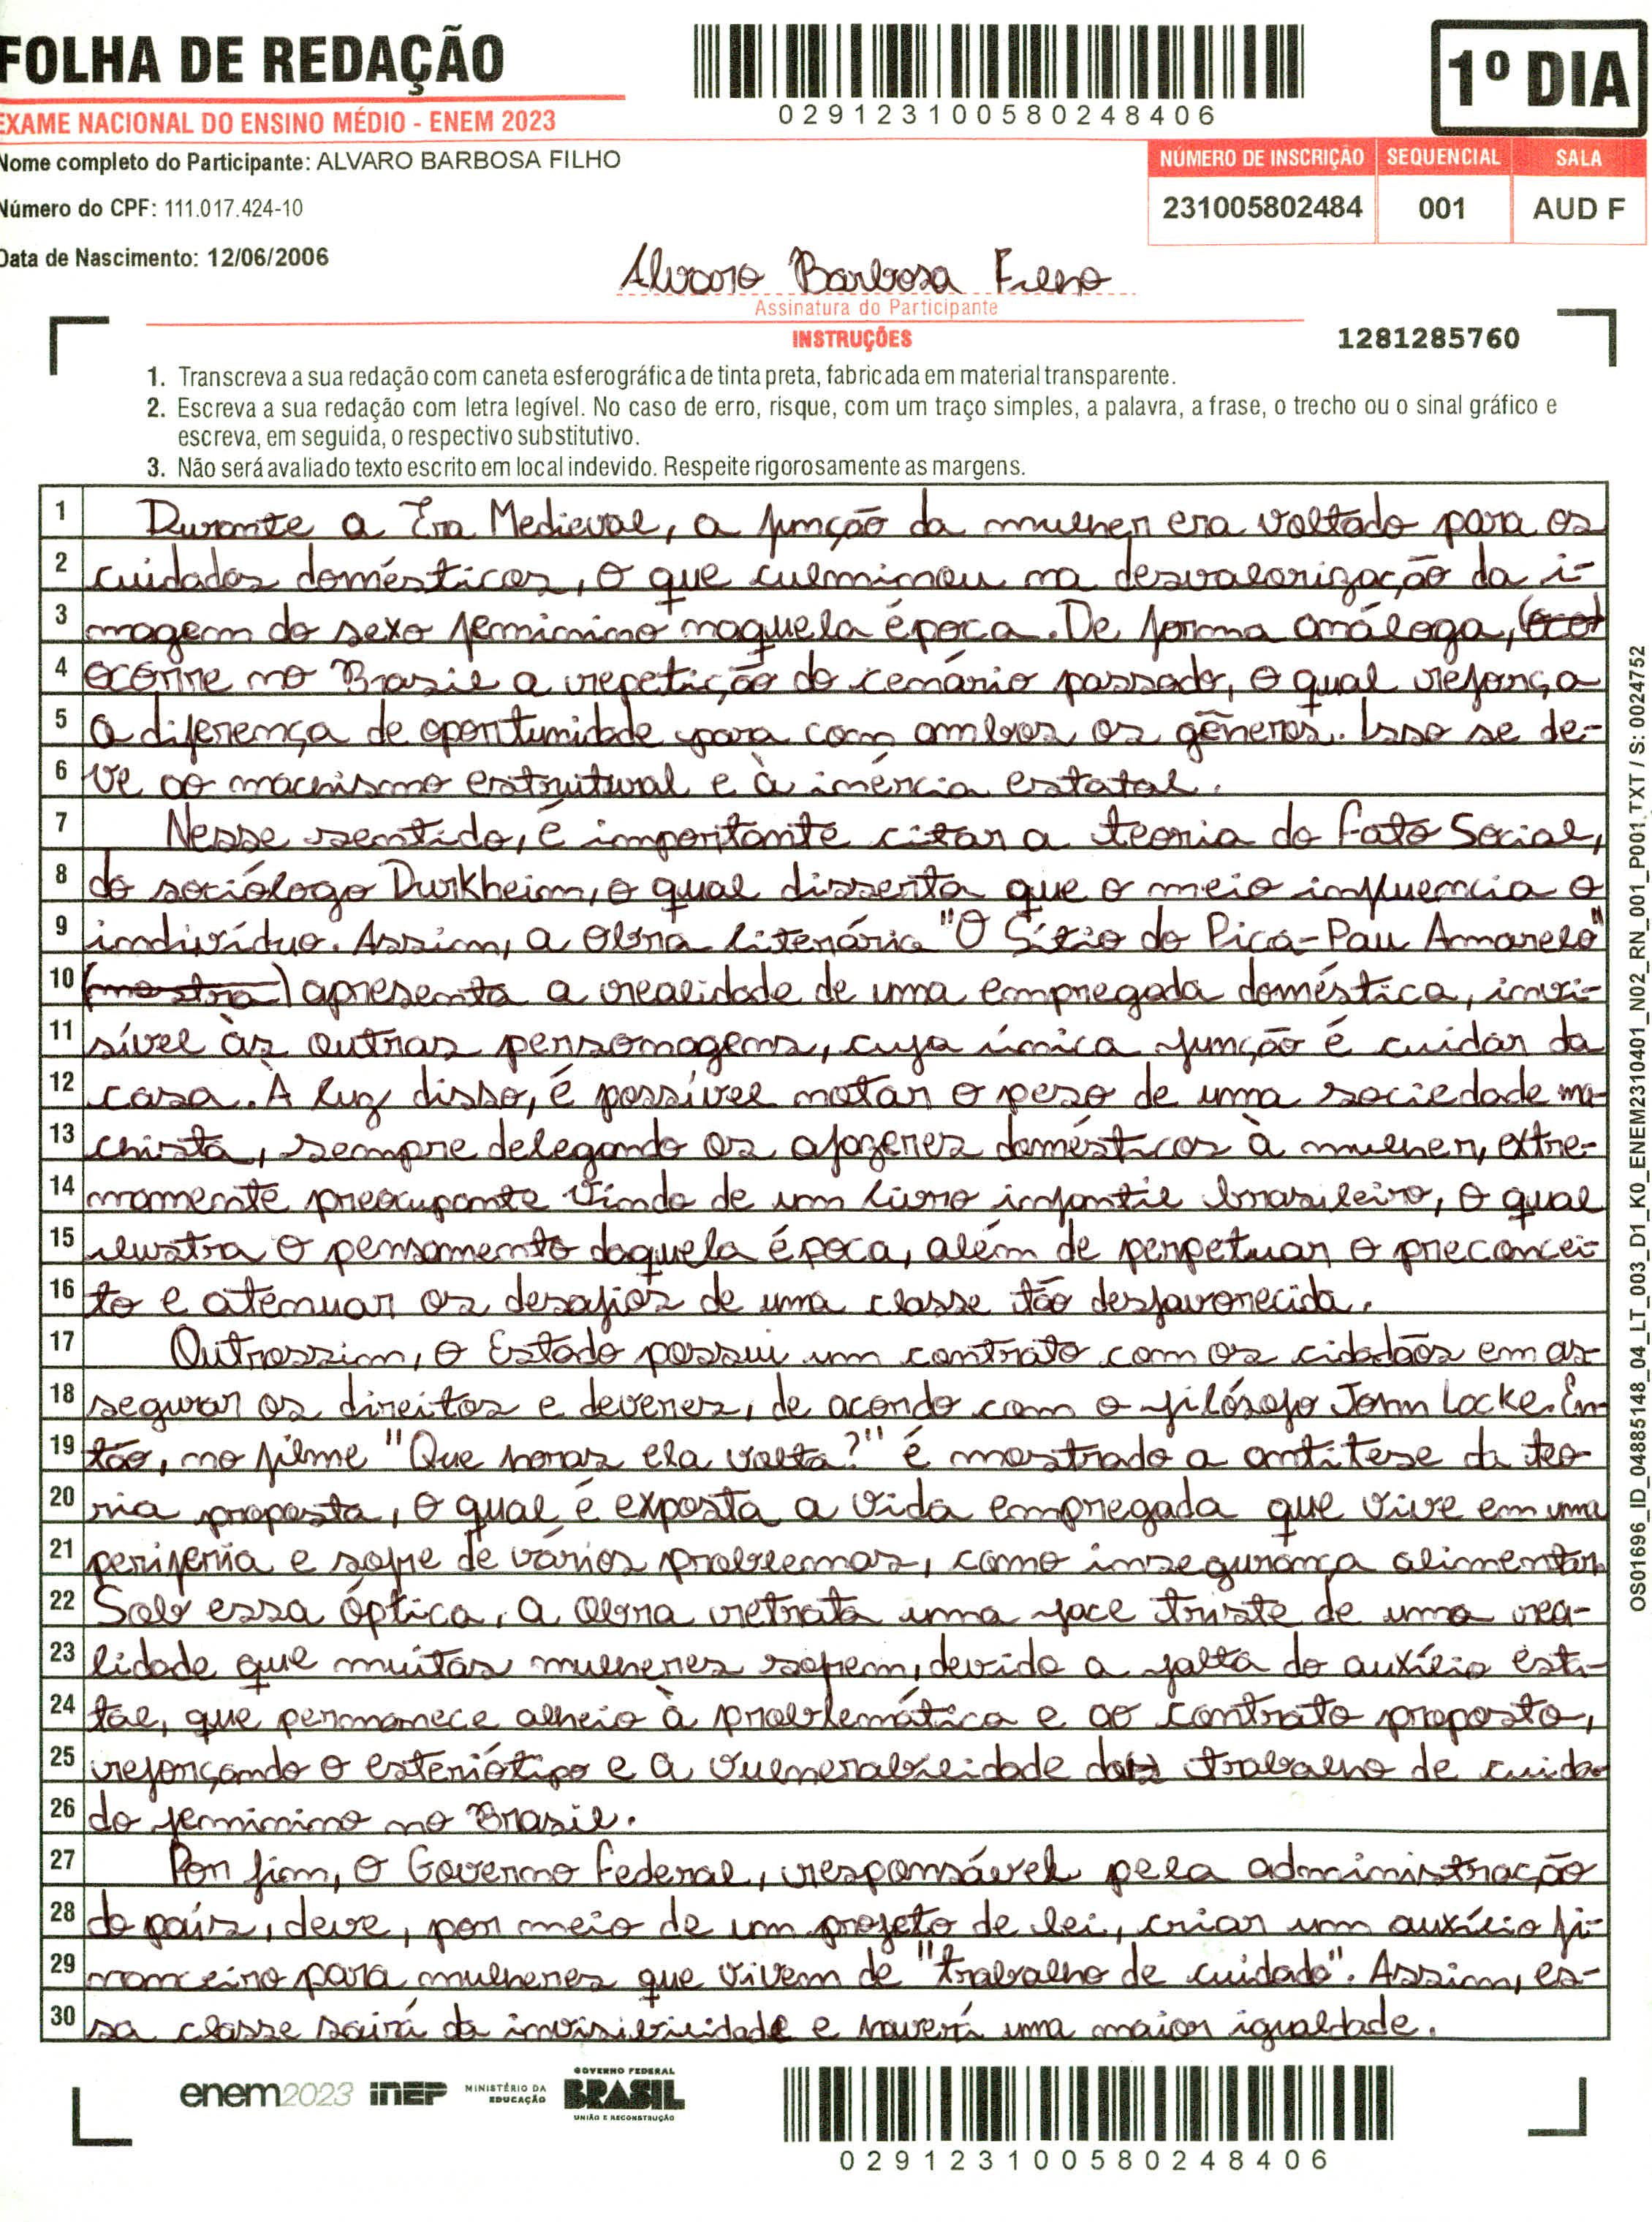 FOLHA DE REDAÇÃO
EXAME NACIONAL DO ENSINO MÉDIO - ENEM 2023
029123100580248406
1º DIA
Nome completo do Participante: ALVARO BARBOSA FILHO
Número do CPF: 111.017.424-10
Data de Nascimento: 12/06/2006
NÚMERO DE INSCRIÇÃO SEQUENCIAL SALA
231005802484 001 AUD F
Alvaro Barbosa Filho
Assinatura do Participante
INSTRUÇÕES
1281285760
1. Transcreva a sua redação com caneta esferográfica de tinta preta, fabricada em material transparente.
2. Escreva a sua redação com letra legível. No caso de erro, risque, com um traço simples, a palavra, a frase, o trecho ou o sinal gráfico e
escreva, em seguida, o respectivo substitutivo.
3. Não será avaliado texto escrito em local indevido. Respeite rigorosamente as margens.
1 Durante a Era Medieval, a função da mulher era voltado para os
2 cuidados domésticos, o que culminou na desvalorização da i-
3 magem do sexo feminino naquela época. De forma análoga, (oco)
4 ocorre no Brasil a repetição do cenário passado, o qual reforça
5 a diferença de oportunidade para com ambos os gêneros. Isso se de-
6 ve ao machismo estrutural e à inércia estatal.
7 Nesse sentido, é importante citar a teoria do Fato Social,
8 do sociólogo Durkheim, o qual disserta que o meio influencia o
9 indivíduo. Assim, a obra literária "O Sítio do Pica-Pau Amarelo"
10 (mostra) apresenta a realidade de uma empregada doméstica, invi-
11 sível às outras personagens, cuja única função é cuidar da
12 casa. À luz disso, é possível notar o peso de uma sociedade ma-
13 chista, sempre delegando os afazeres domésticos à mulher, extre-
14 mamente preocupante vindo de um livro infantil brasileiro, o qual
15 ilustra o pensamento daquela época, além de perpetuar o preconcei-
16 to e atenuar os desafios de uma classe tão desfavorecida.
17 Outrossim, o Estado possui um contrato com os cidadãos em as-
18 segurar os direitos e deveres, de acordo com o filósofo John Locke. En-
19 tão, no filme "Que horas ela volta?" é mostrado a antítese da teo-
20 ria proposta, o qual é exposta a vida empregada que vive em uma
21 periferia e sofre de vários problemas, como insegurança alimentar.
22 Sob essa óptica, a obra retrata uma face triste de uma rea-
23 lidade que muitas mulheres sofrem, devido a falta do auxílio esta-
24 tal, que permanece alheio à problemática e ao contrato proposto,
25 reforçando o esteriótipo e a vulnerabilidade do trabalho de cuida-
26 do feminino no Brasil.
27 Por fim, o Governo Federal, responsável pela administração
28 do país, deve, por meio de um projeto de lei, criar um auxílio fi-
29 nanceiro para mulheres que vivem de "trabalho de cuidado". Assim, es-
30 sa classe sairá da invisibilidade e haverá uma maior igualdade.
OS01696_ID_04885148_04_LT_003_D1_K0_ENEM2310401_N02_RN_001_P001.TXT / S: 0024752
enem2023 INEP MINISTÉRIO DA EDUCAÇÃO GOVERNO FEDERAL BRASIL UNIÃO E RECONSTRUÇÃO
029123100580248406